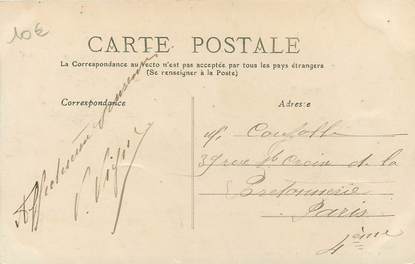 10€
CARTE POSTALE
La Correspondance au recto n'est pas acceptée par tous les pays étrangers
(Se renseigner à la Poste)
Correspondance
Adresse
Affectueux
V.
37 rue Ste Croix de la
Bretonnerie
Paris
4ème